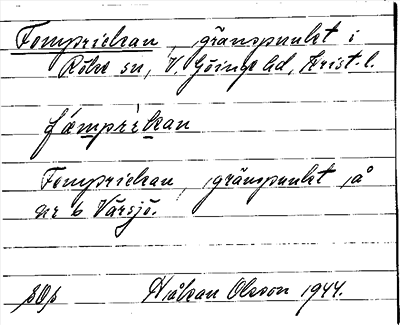 Fempricken, gränspunkt i
Röke sn, V. Göinge hd, Krist. l.
fæmprìkan
Fempricken, gränspunkt på
nr 6 Värsjö.
Håkan Olsson 1944.